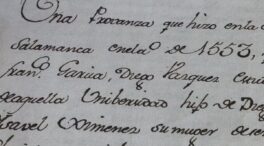 Una Provanza que hizo en la
Salamanca en el aº de 1553,
franᶜᵒ Garcia, Diego Vazquez
de aquella Unibersidad hijo de
Ysavel Ximenez su muger